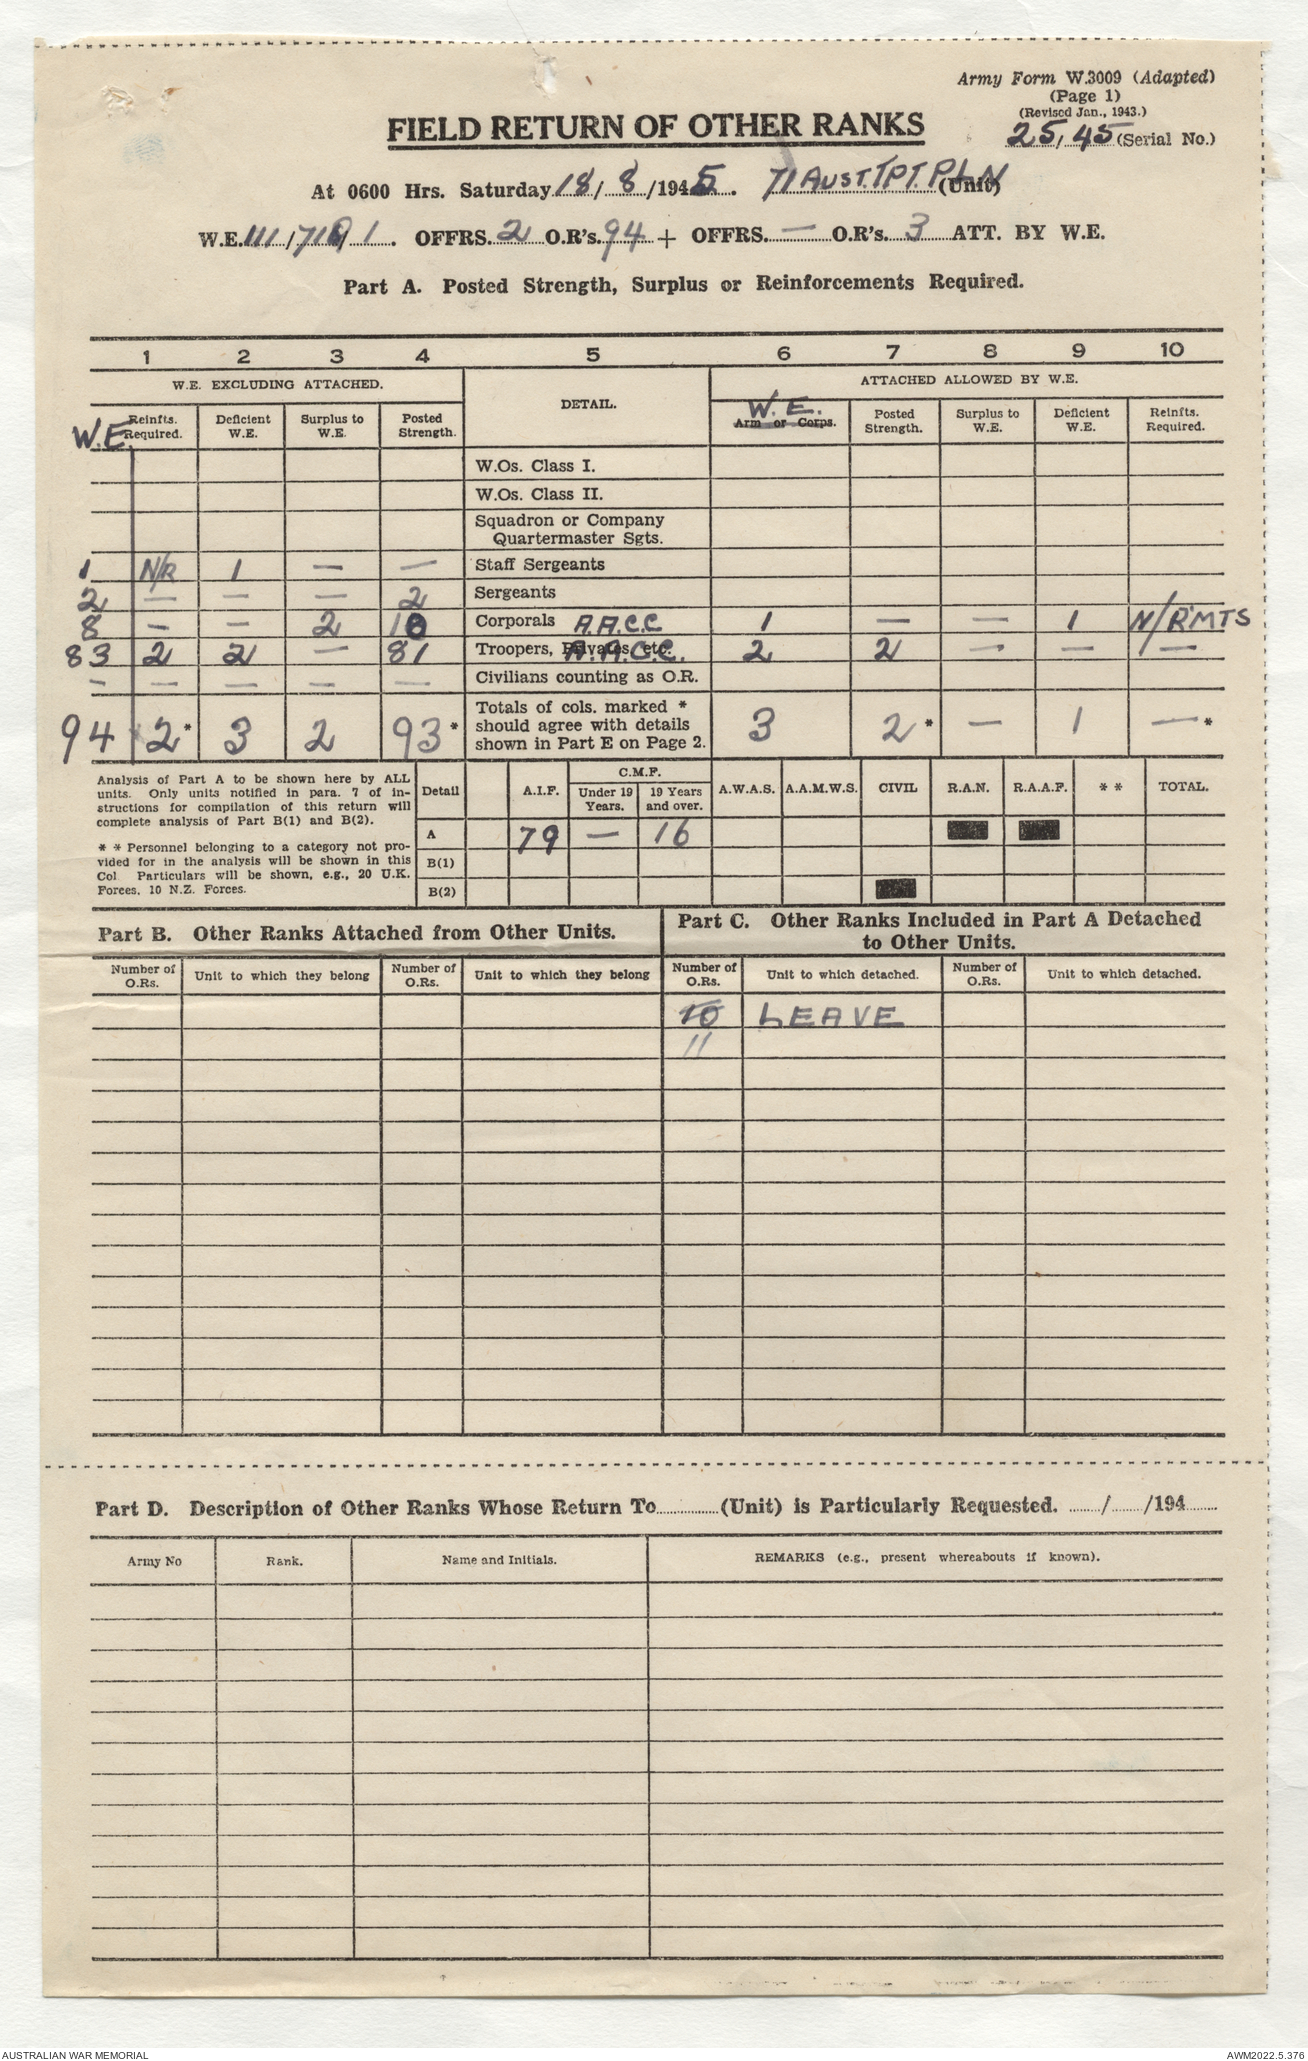 Army Form W.3009 (Adapted)
(Page 1)
(Revised Jan., 1943.)
FIELD RETURN OF OTHER RANKS
25/45 (Serial No.)
At 0600 Hrs. Saturday 18/8/1945. 71 AUST. TPT. PLN (Unit)
W.E. 111/ / 1. OFFRS. 2 O.R's. 94 + OFFRS. — O.R's. 3 ATT. BY W.E.
Part A. Posted Strength, Surplus or Reinforcements Required.
1 2 3 4 5 6 7 8 9 10
W.E. EXCLUDING ATTACHED. DETAIL. ATTACHED ALLOWED BY W.E.
W.E. Reinfts. Required. Deficient W.E. Surplus to W.E. Posted Strength. W.E. Arm or Corps. Posted Strength. Surplus to W.E. Deficient W.E. Reinfts. Required.
W.Os. Class I.
W.Os. Class II.
Squadron or Company
Quartermaster Sgts.
1 N/R 1 — — Staff Sergeants
2 — — — 2 Sergeants
8 — — 2 10 Corporals A.A.C.C 1 — — 1 N/R MTS
83 2 2 — 81 Troopers, Privates, etc. A.A.C.C. 2 2 — — —
— — — — — Civilians counting as O.R.
Totals of cols. marked *
should agree with details
shown in Part E on Page 2.
94 2* 3 2 93* 3 2* — 1 —*
Analysis of Part A to be shown here by ALL
units. Only units notified in para. 7 of in-
structions for compilation of this return will
complete analysis of Part B(1) and B(2).
* * Personnel belonging to a category not pro-
vided for in the analysis will be shown in this
Col Particulars will be shown, e.g., 20 U.K.
Forces, 10 N.Z. Forces.
Detail A.I.F. C.M.F. Under 19 Years. 19 Years and over. A.W.A.S. A.A.M.W.S. CIVIL R.A.N. R.A.A.F. * * TOTAL.
A 79 — 16
B(1)
B(2)
Part B. Other Ranks Attached from Other Units.
Part C. Other Ranks Included in Part A Detached
to Other Units.
Number of O.Rs. Unit to which they belong Number of O.Rs. Unit to which they belong Number of O.Rs. Unit to which detached. Number of O.Rs. Unit to which detached.
10 LEAVE
11
Part D. Description of Other Ranks Whose Return To (Unit) is Particularly Requested. / /194
Army No Rank. Name and Initials. REMARKS (e.g., present whereabouts if known).
AUSTRALIAN WAR MEMORIAL
AWM2022.5.376